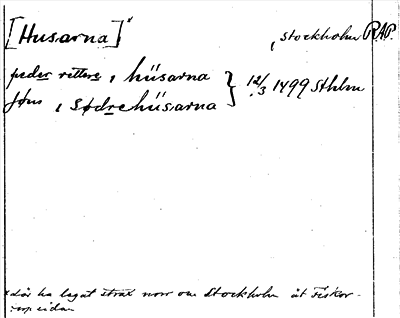 [Husarna]× , Stockholm RAP.
peder retters i hüsarna } 12/3 1499 Sthlm
Jøns i Sødrehüsarna
× där ha legat strax norr om Stockholm åt Fiskar-
sidan